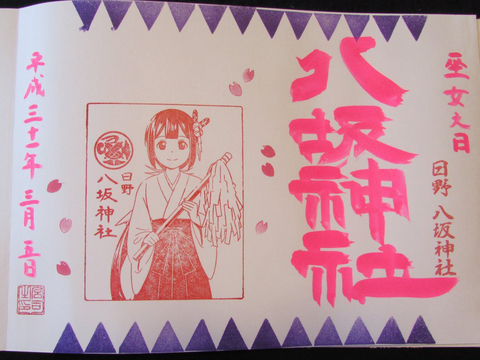 巫女 日
日野 八坂神社
八坂神社
日野
八坂神社
平成三十一年 三月 五日